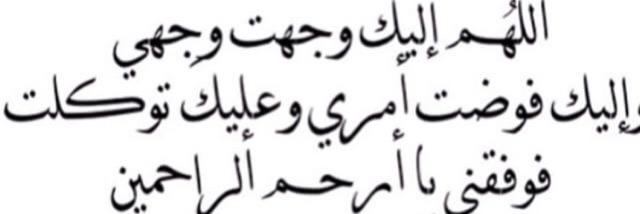 اللهُم إليك وجهت وجهي
وإليك فوضت أمري وعليك توكلت
فوفقني يا أرحم الراحمين